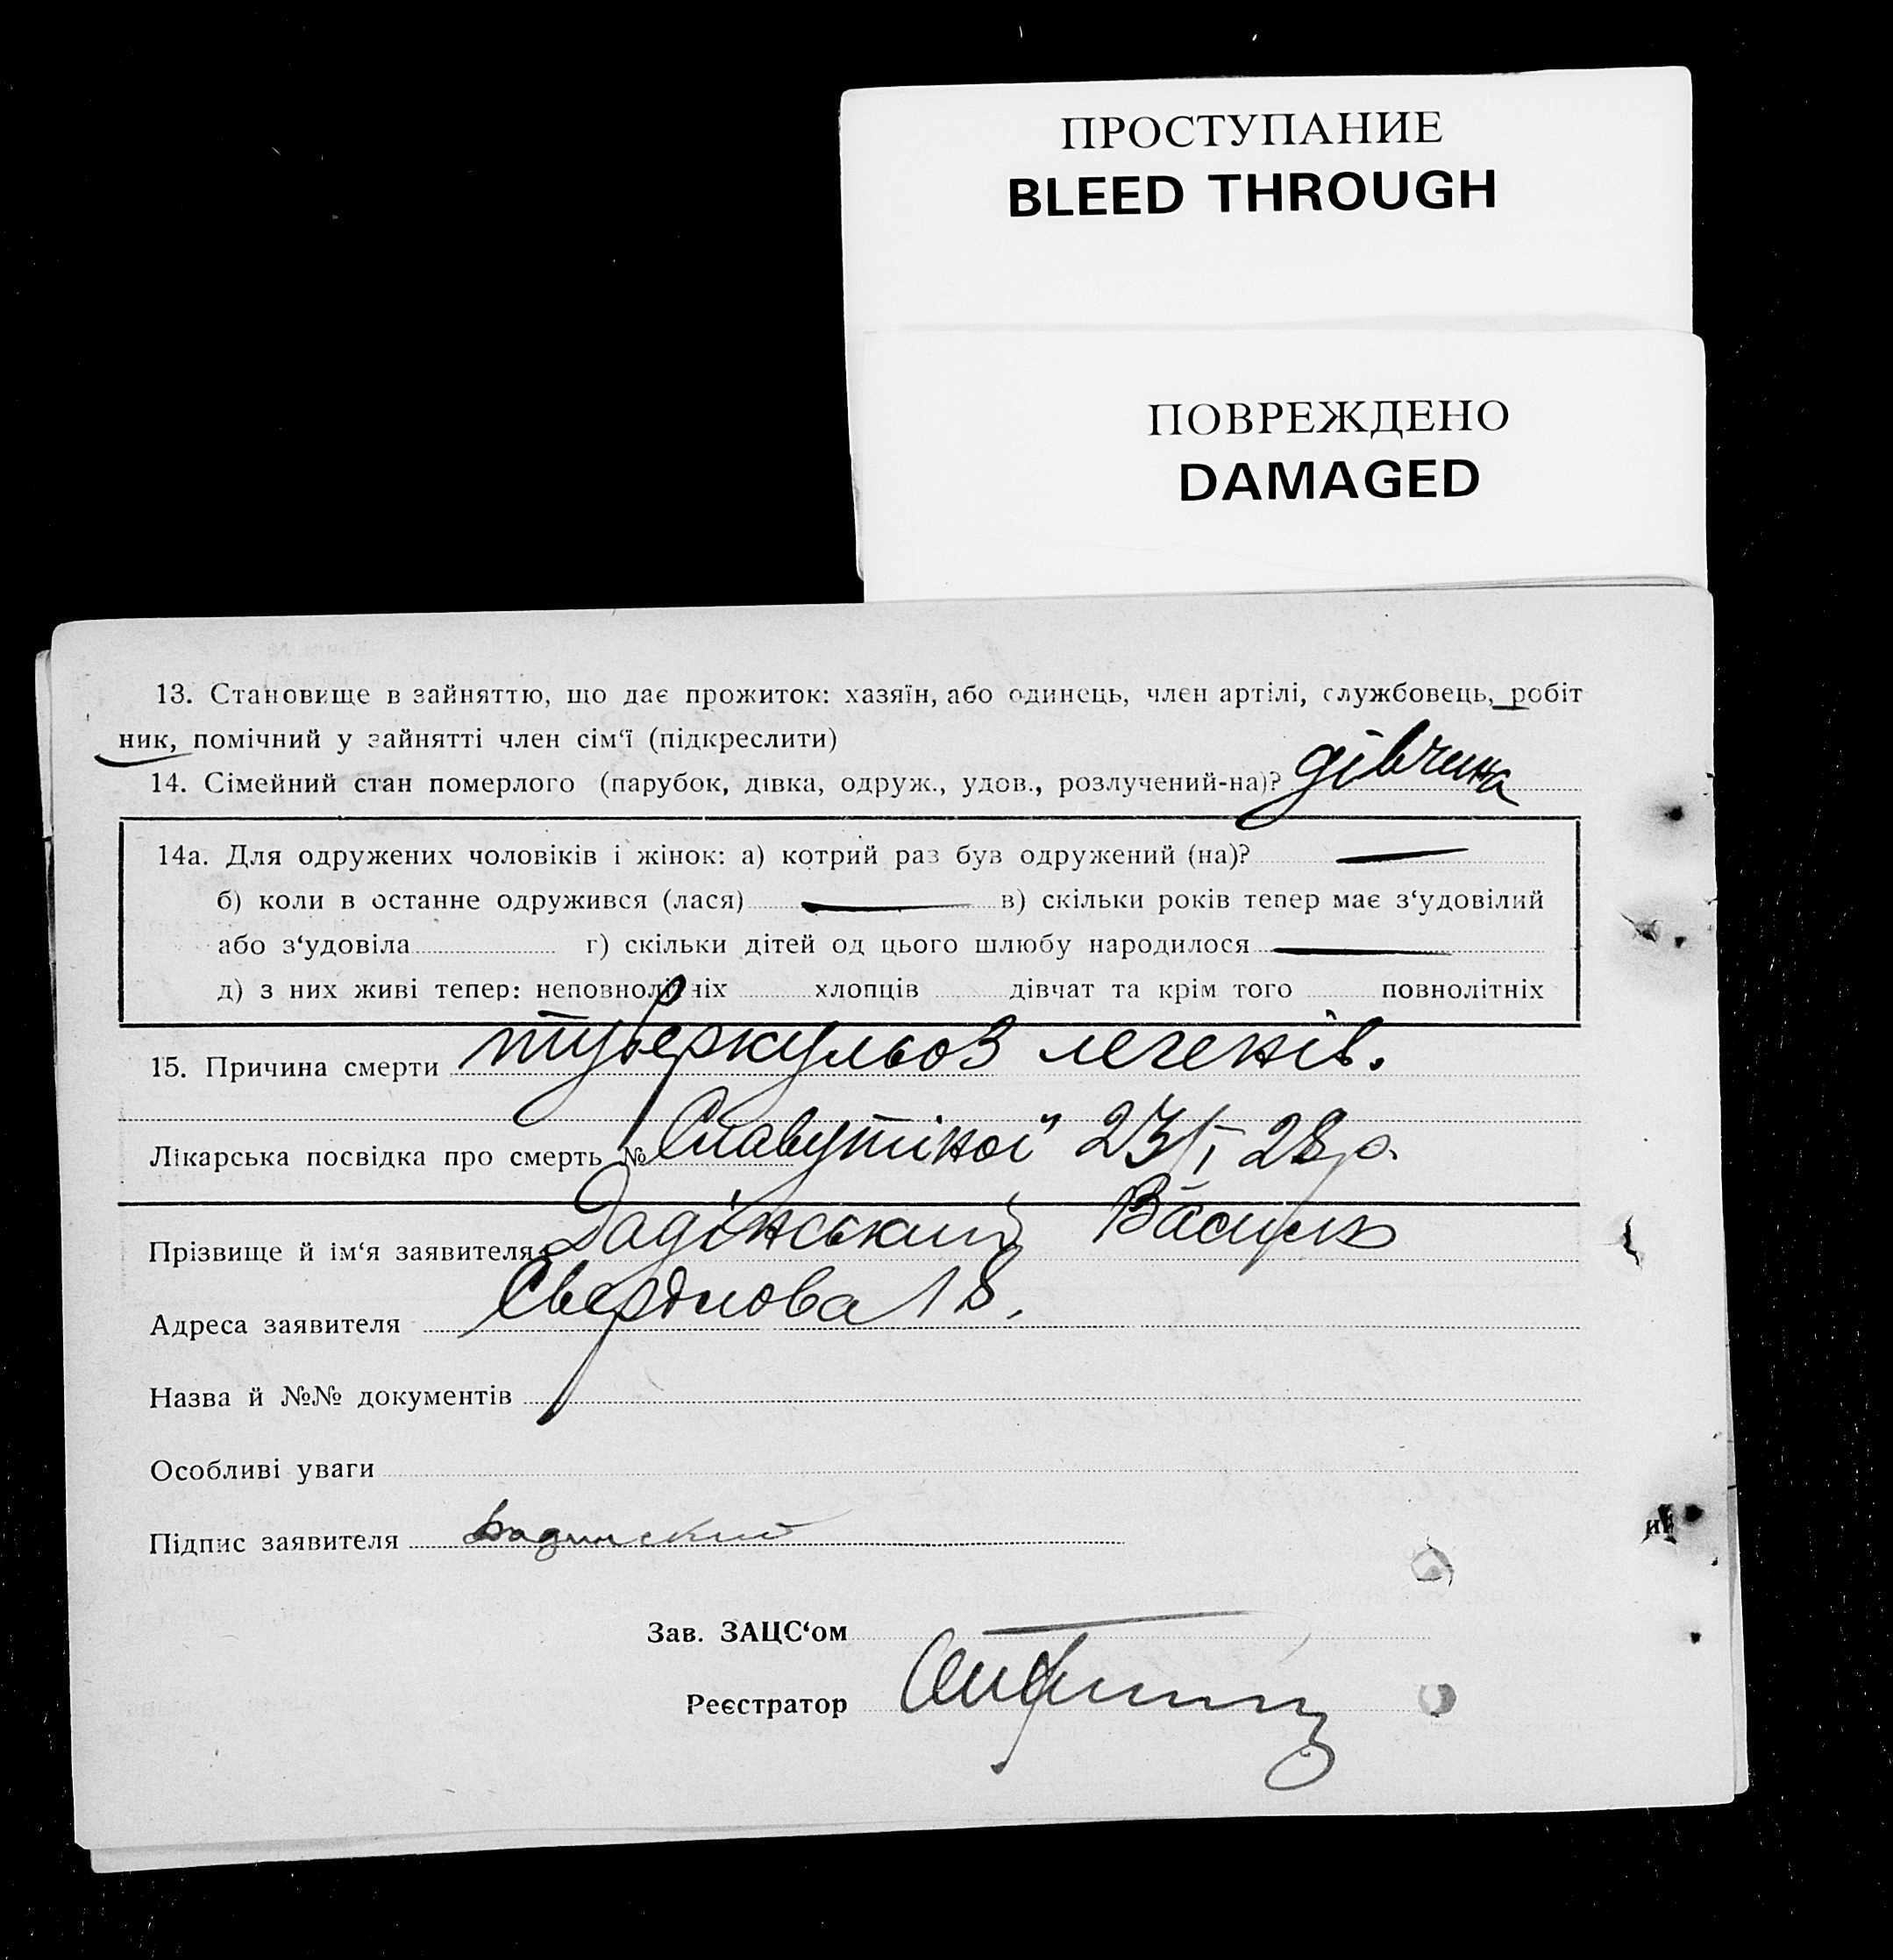 ПРОСТУПАНИЕ
BLEED THROUGH
ПОВРЕЖДЕНО
DAMAGED
13. Становище в зайняттю, що дає прожиток: хазяїн, або одинець, член артілі, службовець, робіт
ник, помічний у зайнятті член сім'ї (підкреслити)
14. Сімейний стан померлого (парубок, дівка, одруж., удов., розлучений-на)? дівчина
14а. Для одружених чоловіків і жінок: а) котрий раз був одружений (на)?
б) коли в останне одружився (лася) в) скільки років тепер має з'удовілий
або з'удовіла г) скільки дітей од цього шлюбу народилося
д) з них живі тепер: неповнолітніх хлопців дівчат та крім того повнолітніх
15. Причина смерти туберкульоз легенів.
Лікарська посвідка про смерть № Славутіної 23/I 28 р.
Прізвище й ім'я заявителя Василь
Адреса заявителя Свердлова 18.
Назва й №№ документів
Особливі уваги
Підпис заявителя
Зав. ЗАЦС'ом
Реєстратор